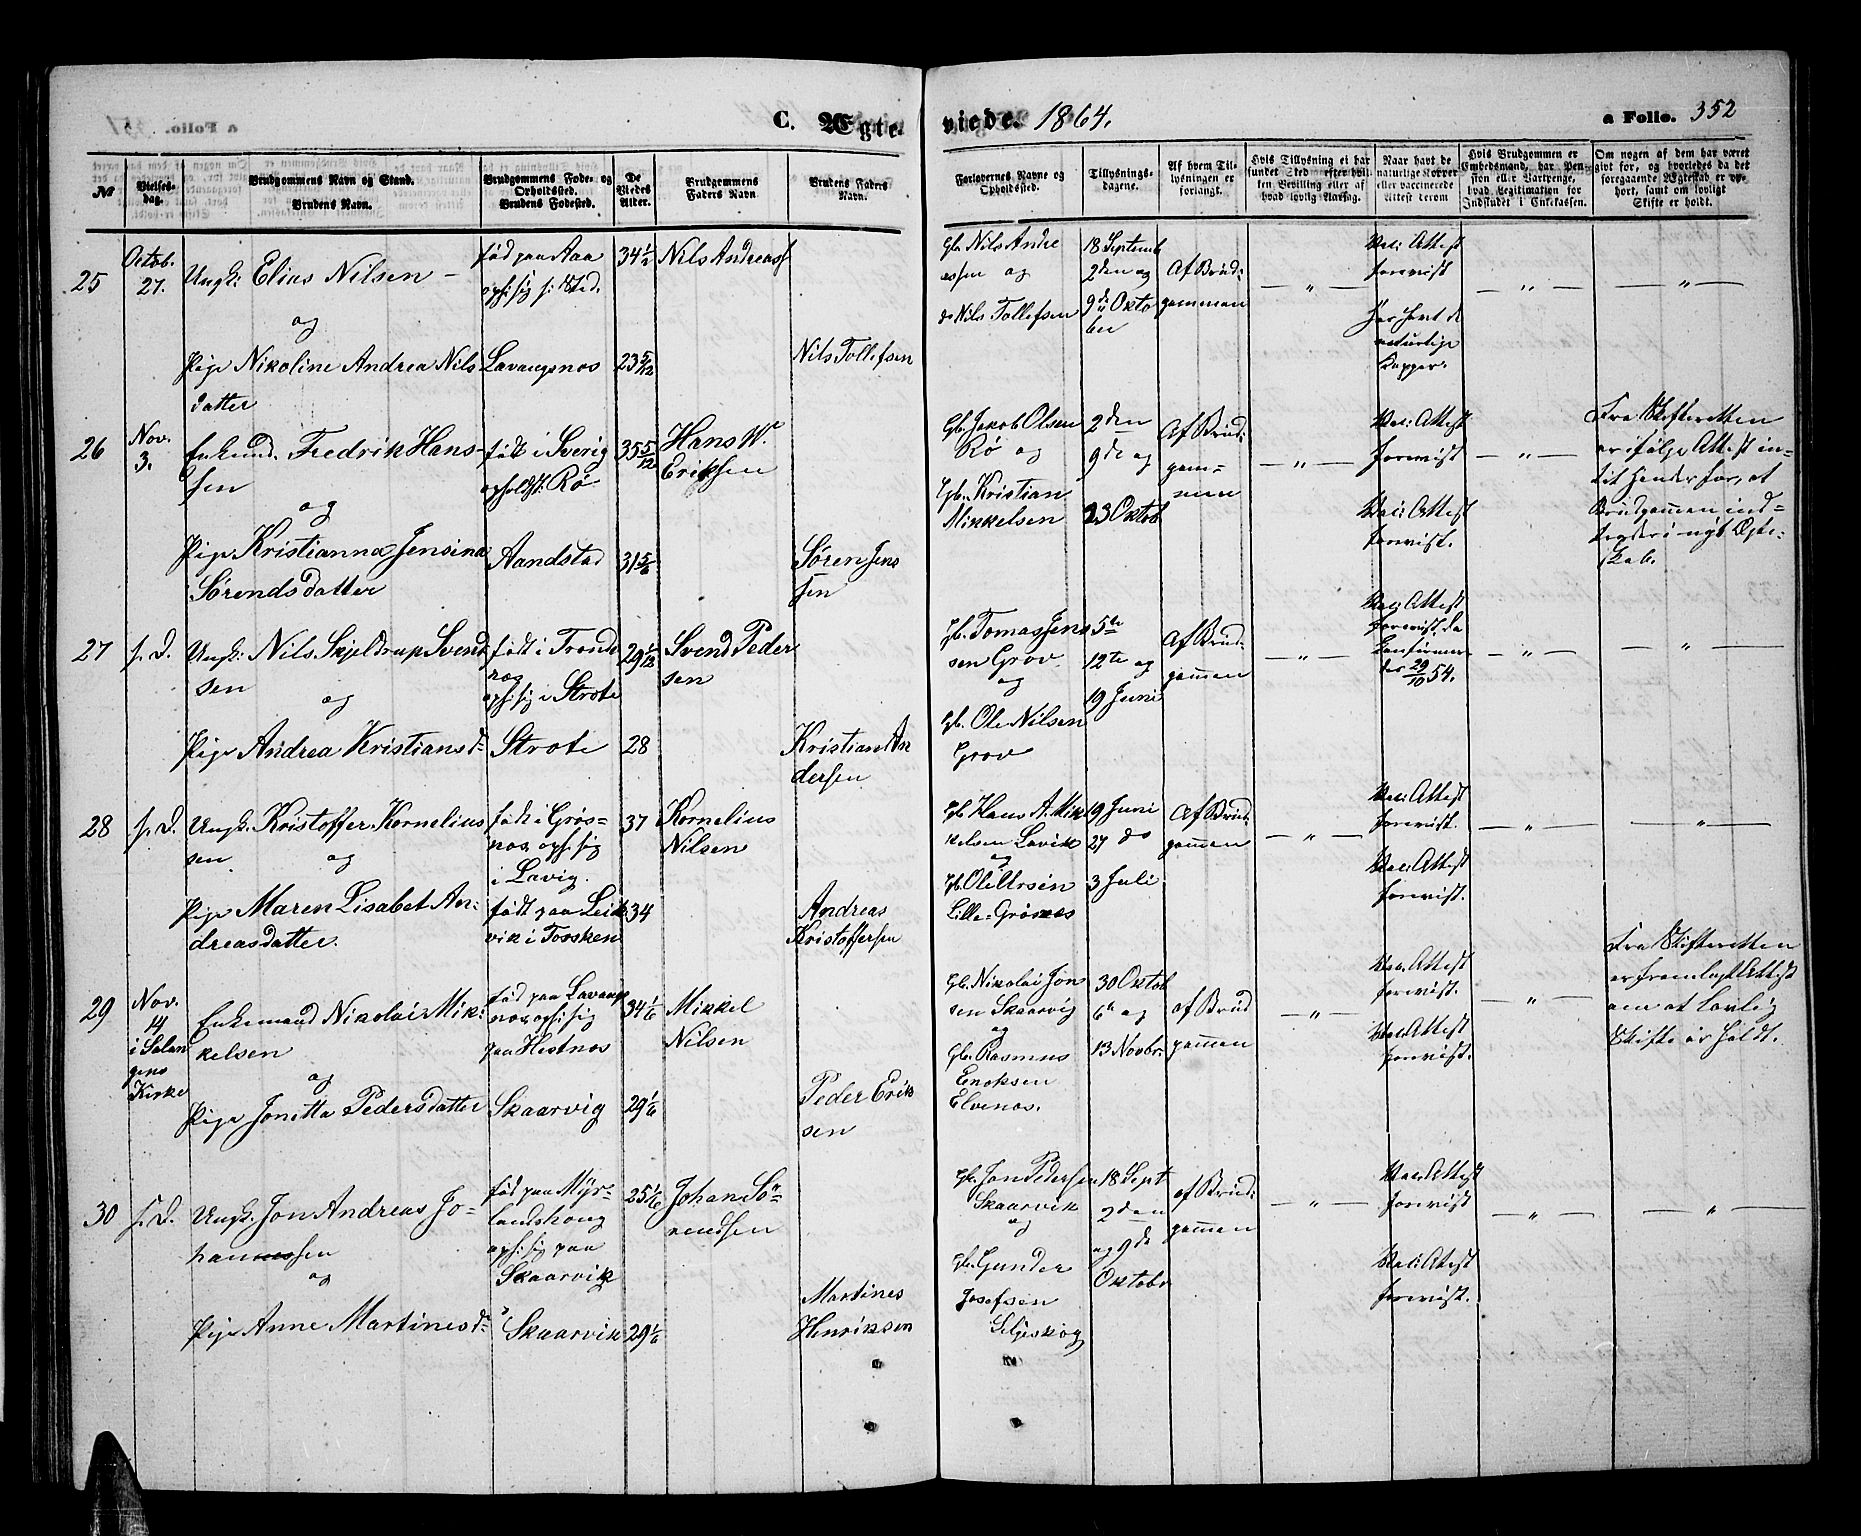 C. Ægte-
viede. 1864.
a Folio. 352
No
Vielses-dag.
Brudgommens Navn og Stand.
Brudens Navn.
Brudgommens Føde- og Opholdssted.
Brudens Fødested.
De Viedes Alder.
Brudgommens Faders Navn
Brudens Faders Navn.
Forlovernes Navne og Opholdssted.
Tillysnings-dagene.
Af hvem Tillysningen er forlangt.
Hvis Tillysning ei har fundet Sted efter hvilken Bevilling eller af hvad lovlig Aarsag.
Naar havt de naturlige Kopper eller vaccinerede Attest derom
Hvis Brudgommen er Embedsmand, har Pension eller Vartpenge, hvad Legitimation for Indskudet i Enkekassen.
Om nogen af dem har været givt før, og hvorledes da det foregaaende Ægteskab er ophørt, samt om lovligt Skifte er holdt.
25
Octob.
27.
Ungk: Elias Nilsen
og
Pige Nikoline Andrea Nils
datter
fød paa Aaa
oph. sig s: Sted.
Lavangsnos
34 1/2
23 5/12
Nils Andreass
Nils Tollefsen
Gb. Nils Andre
assen og
do Nils Tollefsen
18 Septemb
2den og
9de Okto
ber
Af Brud-
gommen
Vac: Attest
forevist
Har havt de
naturlige
Kopper.
26
Nov.
3.
Enkemd. Fredrik Hans-
sen
og
Pige Kristianna Jensina
Sørendsdatter
født i Sverig
opholdst: Rø
Aandstad
35 5/12
31 5/6
Hans W.
Eriksen
Søren Jens
sen
Gb. Jakob Olsen
Rø og
Gb. Kristian
Mikkelsen
2den
9de og
23 Oktob
Af Brud-
gom-
men
Vac: Attest
forevist
Vac: Attest
forevist.
Fra Skifteretten
er ifølge Attest in-
tet hinder for, at
Brudgommen ind-
træder i nyt Ægte-
skab.
27
s. D.
Ungk: Nils Skjeldrup Svend
sen
og
Pige Andrea Kristiansdr
født i Trond
næs
oph. sig i Strote
Strote
29 1/12
28
Svend Peder
sen
Kristian An
dersen
Gb. Tomas Jens
sen Grov
og
Gb. Ole Nilsen
Grov
5te
12te og
19 Juni
Af Brud-
gommen
Vac: Attest
forevist, da
Confirmer-
des 29/10 54.
28
s. D.
Ungk. Kristoffer Kornelius
sen og
Pige Maren Lisabet An-
dreasdatter.
født i Grøs-
nos, oph. sig
i Lavig.
født paa Leik
vik i Torsken
37
34
Kornelius
Nilsen
Andreas
Kristoffersen
Gb. Hans A. Mik
kelsen Lavik
og
Gb. Ole Ursin
Lille-Grøsnes
19 Juni
27 do
3 Juli
Af Brud-
gommen
Vac: Attest
forevist.
Vac: Attest
forevist.
29
Nov.
14
i Salan
gens
Kirke
Enkemand Nikolai Mik-
kelsen
og
Pige Jonetta Pedersdatter
fød paa Lavangs
nos, oph. sig
paa Hestnos
Skaarvig
34 1/6
29 1/6
Mikkel
Nilsen
Peder Erik
sen
Gb. Nikolai Jon
sen Skaarvig
og
Gb. Rasmus
Enoksen
Elvenos.
30 Oktob
6te og
13 Novbr.
af Brud
gommen
Vac. Attest
forevist.
Vac. Attest
forevist.
Fra Skifteretten
er fremlagt Attest
om at lovlig
Skifte er holdt.
30
s. D.
Ungk. Jon Andreas Jo-
hannessen
og
Pige Anne Martinesdr
fød paa Myr-
landshoug
oph. sig paa
Skaarvik
Skaarvik
25 1/6
29 1/6
Johan Sö-
rendsen
Martines
Henriksen
Gb. Jon Pedersen
Skaarvik
og
Gb. Gunder
Josefsen
Seljeskog
18 Sept
2den
og 9de
Oktobr
af Brud-
gommen
Vac. Attest
forevist
Vac: Attest
forevist.